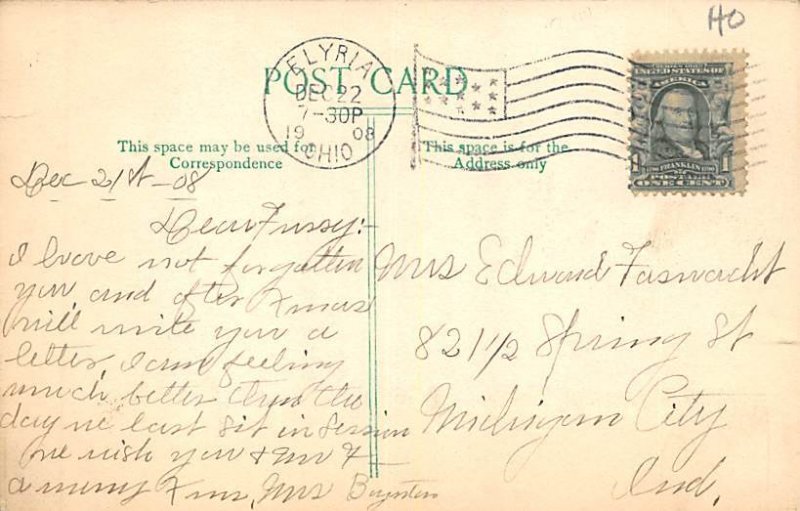 HO
ELYRIA
DEC 22
7-30P
1908
OHIO
POST CARD
This space may be used for
Correspondence
This space is for the
Address only
UNITED STATES OF AMERICA
FRANKLIN
POSTAGE
1 ONE CENT 1
Dec 21st - 08
Dear Fussy:-
I have not forgotten
you, and after Xmas
will write you a
letter, I am feeling
much better than the
day we last sit in session
we wish you & Mr F-
a merry Xms, Mrs Boynton
Mrs Edward Faswacht
821 1/2 Spring St
Michigan City
Ind.